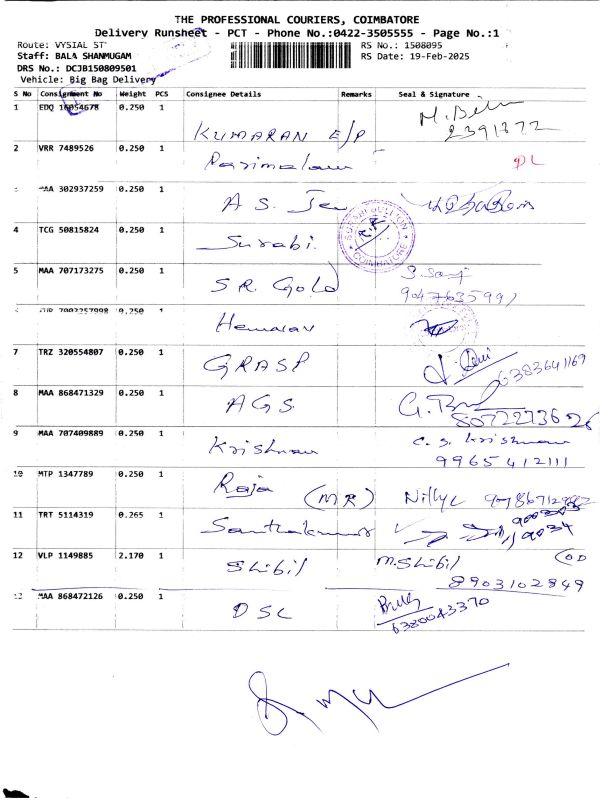 THE PROFESSIONAL COURIERS, COIMBATORE
Delivery Runsheet - PCT - Phone No.:0422-3505555 - Page No.:1
Route: VYSIAL ST
RS No.: 1508095
Staff: BALA SHANMUGAM
RS Date: 19-Feb-2025
DRS No.: DCJB150809501
Vehicle: Big Bag Delivery
S No Consignment No Weight PCS Consignee Details Remarks Seal & Signature
1 EDQ 16054678 0.250 1 KUMARAN E/P
2391372
2 VRR 7489526 0.250 1 Parimalam DL
MAA 302937259 0.250 1 A S. Jew
4 TCG 50815824 0.250 1 Surabi.
SURABI BULLION COIMBATORE
5 MAA 707173275 0.250 1 SR Gold
9047635991
7003257998 0.250 1
7 TRZ 320554807 0.250 1 GRASP
6383641169
8 MAA 868471329 0.250 1 AGS
9 MAA 707409889 0.250 1 Krishnan C. S. Krishnan
9965412111
10 MTP 1347789 0.250 1 Raja (MR)
11 TRT 5114319 0.265 1 Santhakumar
12 VLP 1149885 2.170 1 Shibil M. Shibil COD
8903102849
13 MAA 868472126 0.250 1 DSC
6380043370